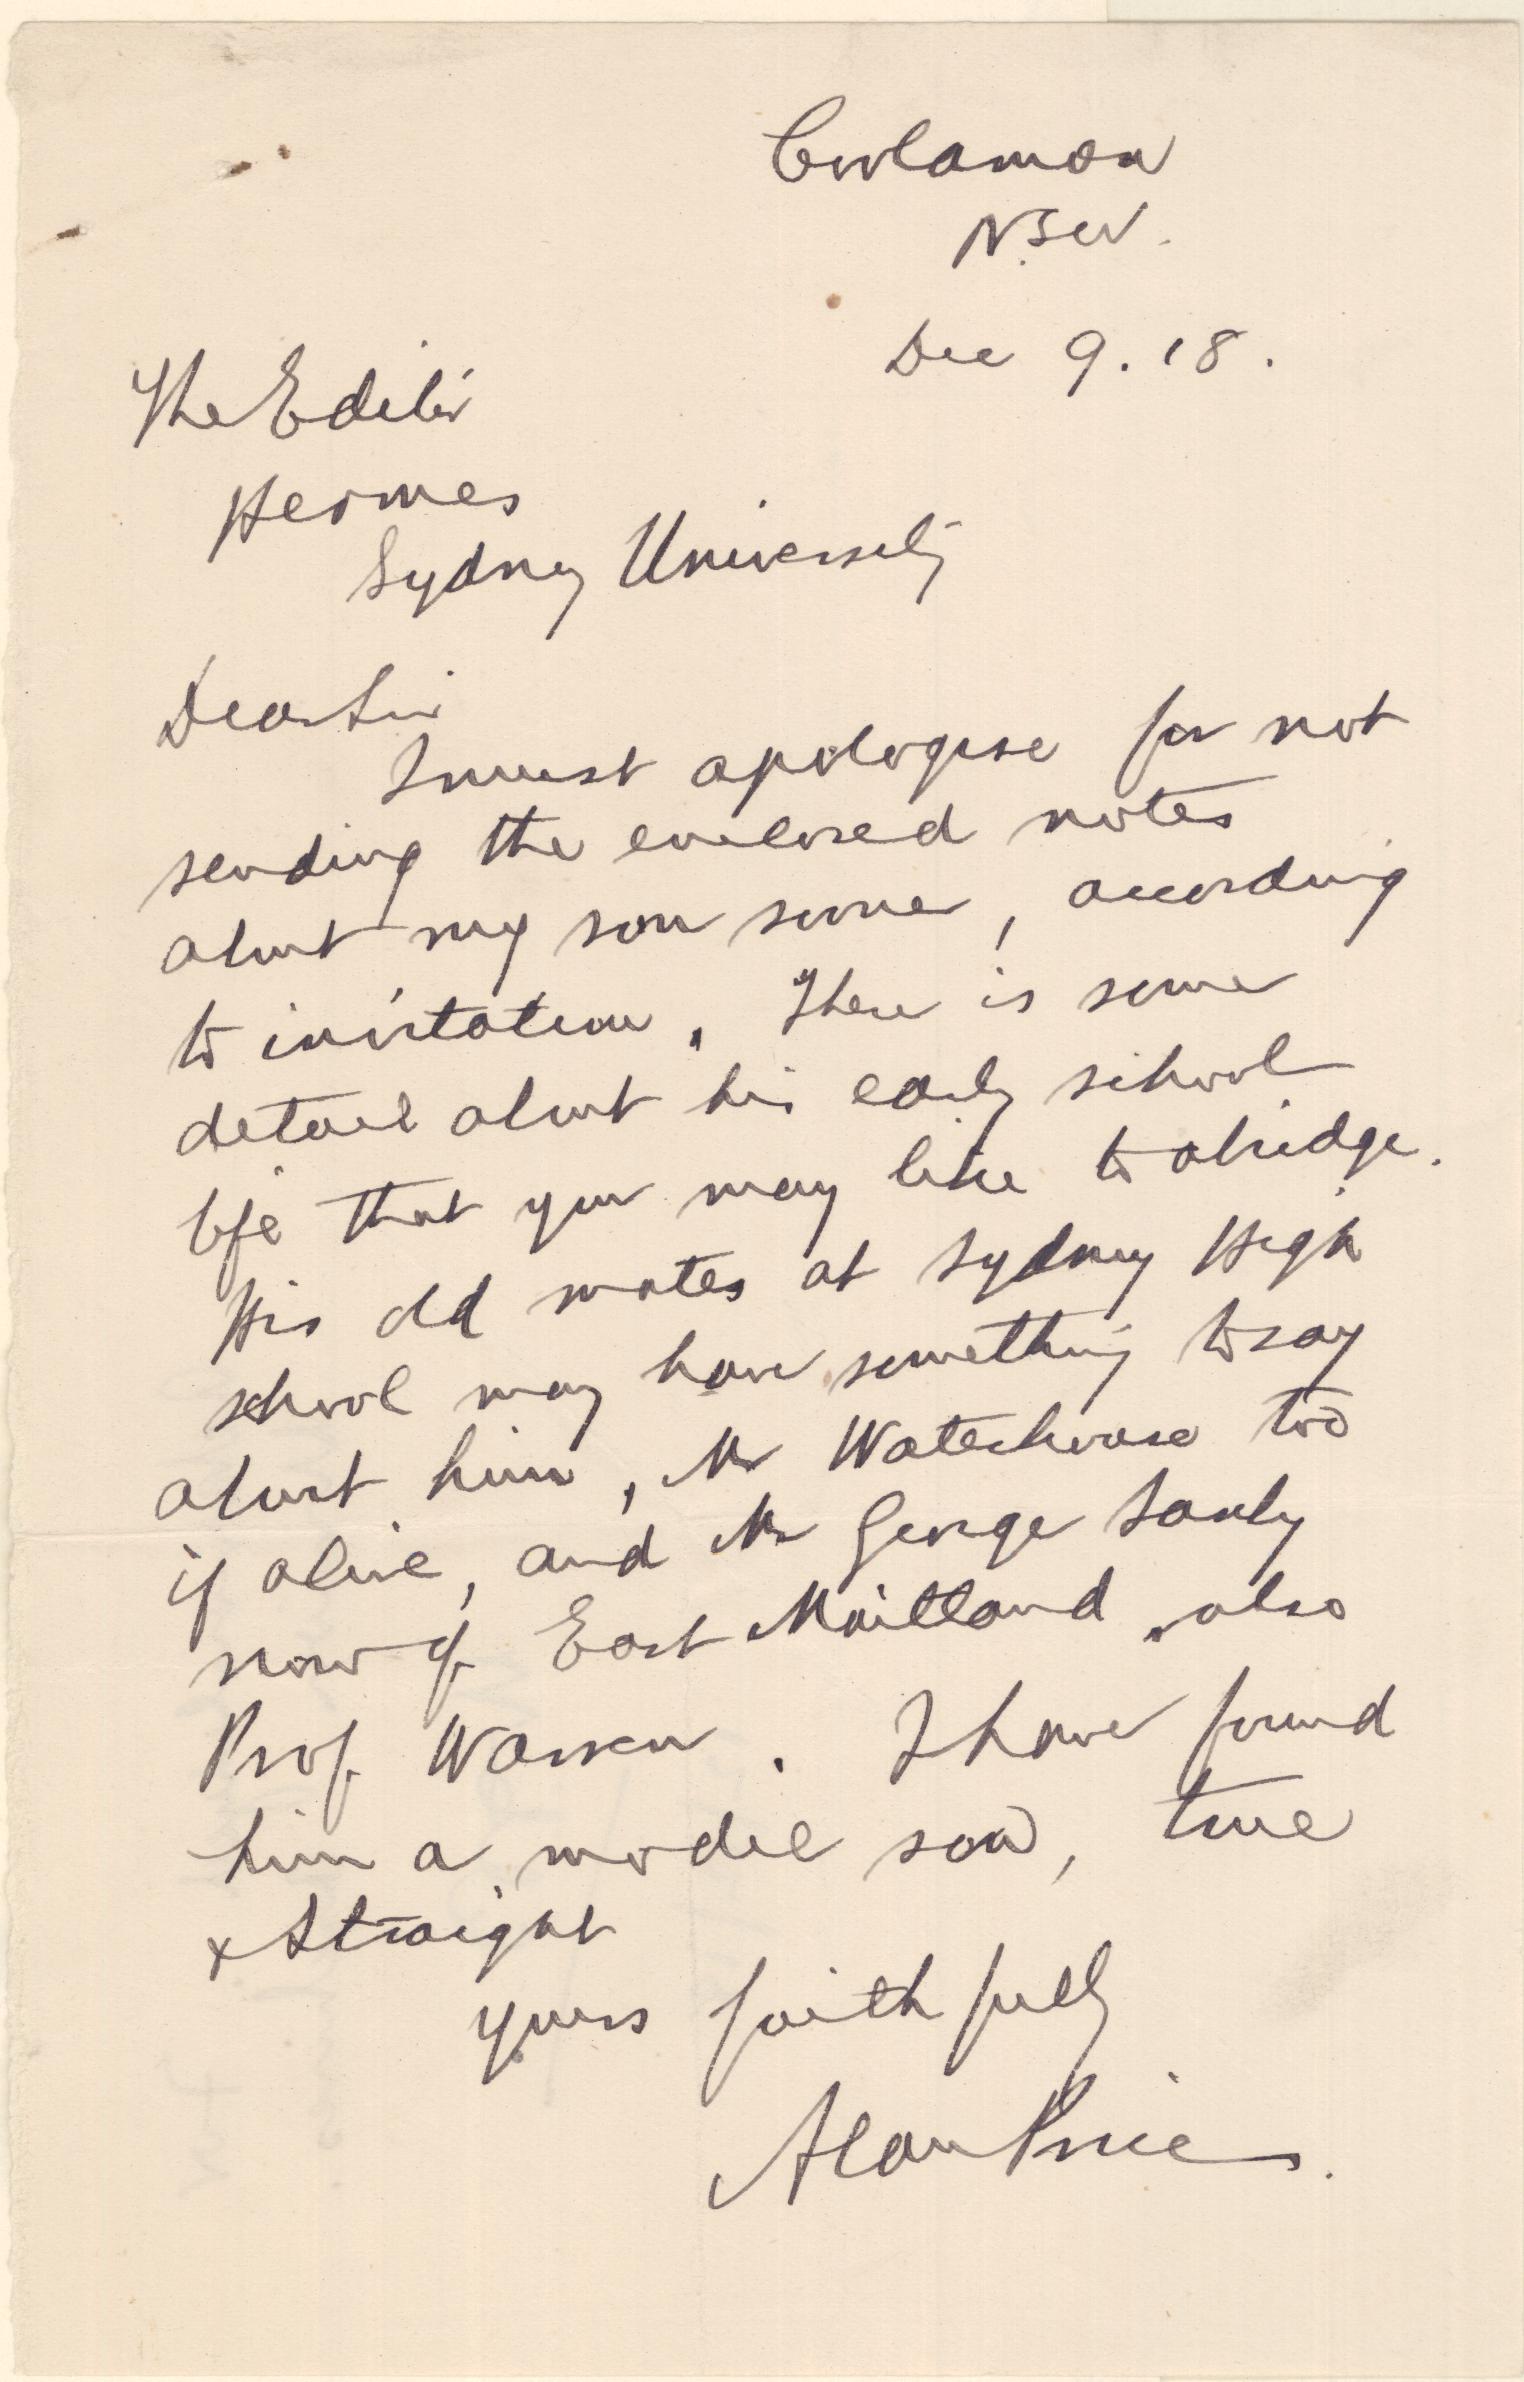 Coolamon
N.S.W.
Dec 9.18.
The Editor
Hermes
Sydney University
Dear Sir
I must apologise for not
sending the enclosed notes
about my son sooner, according
to invitation. There is some
detail about his early school
life that you may like to abridge.
His old mates at Sydney High
school may have something to say
about him, Mr Waterhouse too
if alive, and Mr George
now of East Maitland, also
Prof. Warren. I have found
him a model son, true
& Straight
Yours faithfully
Alan Price.